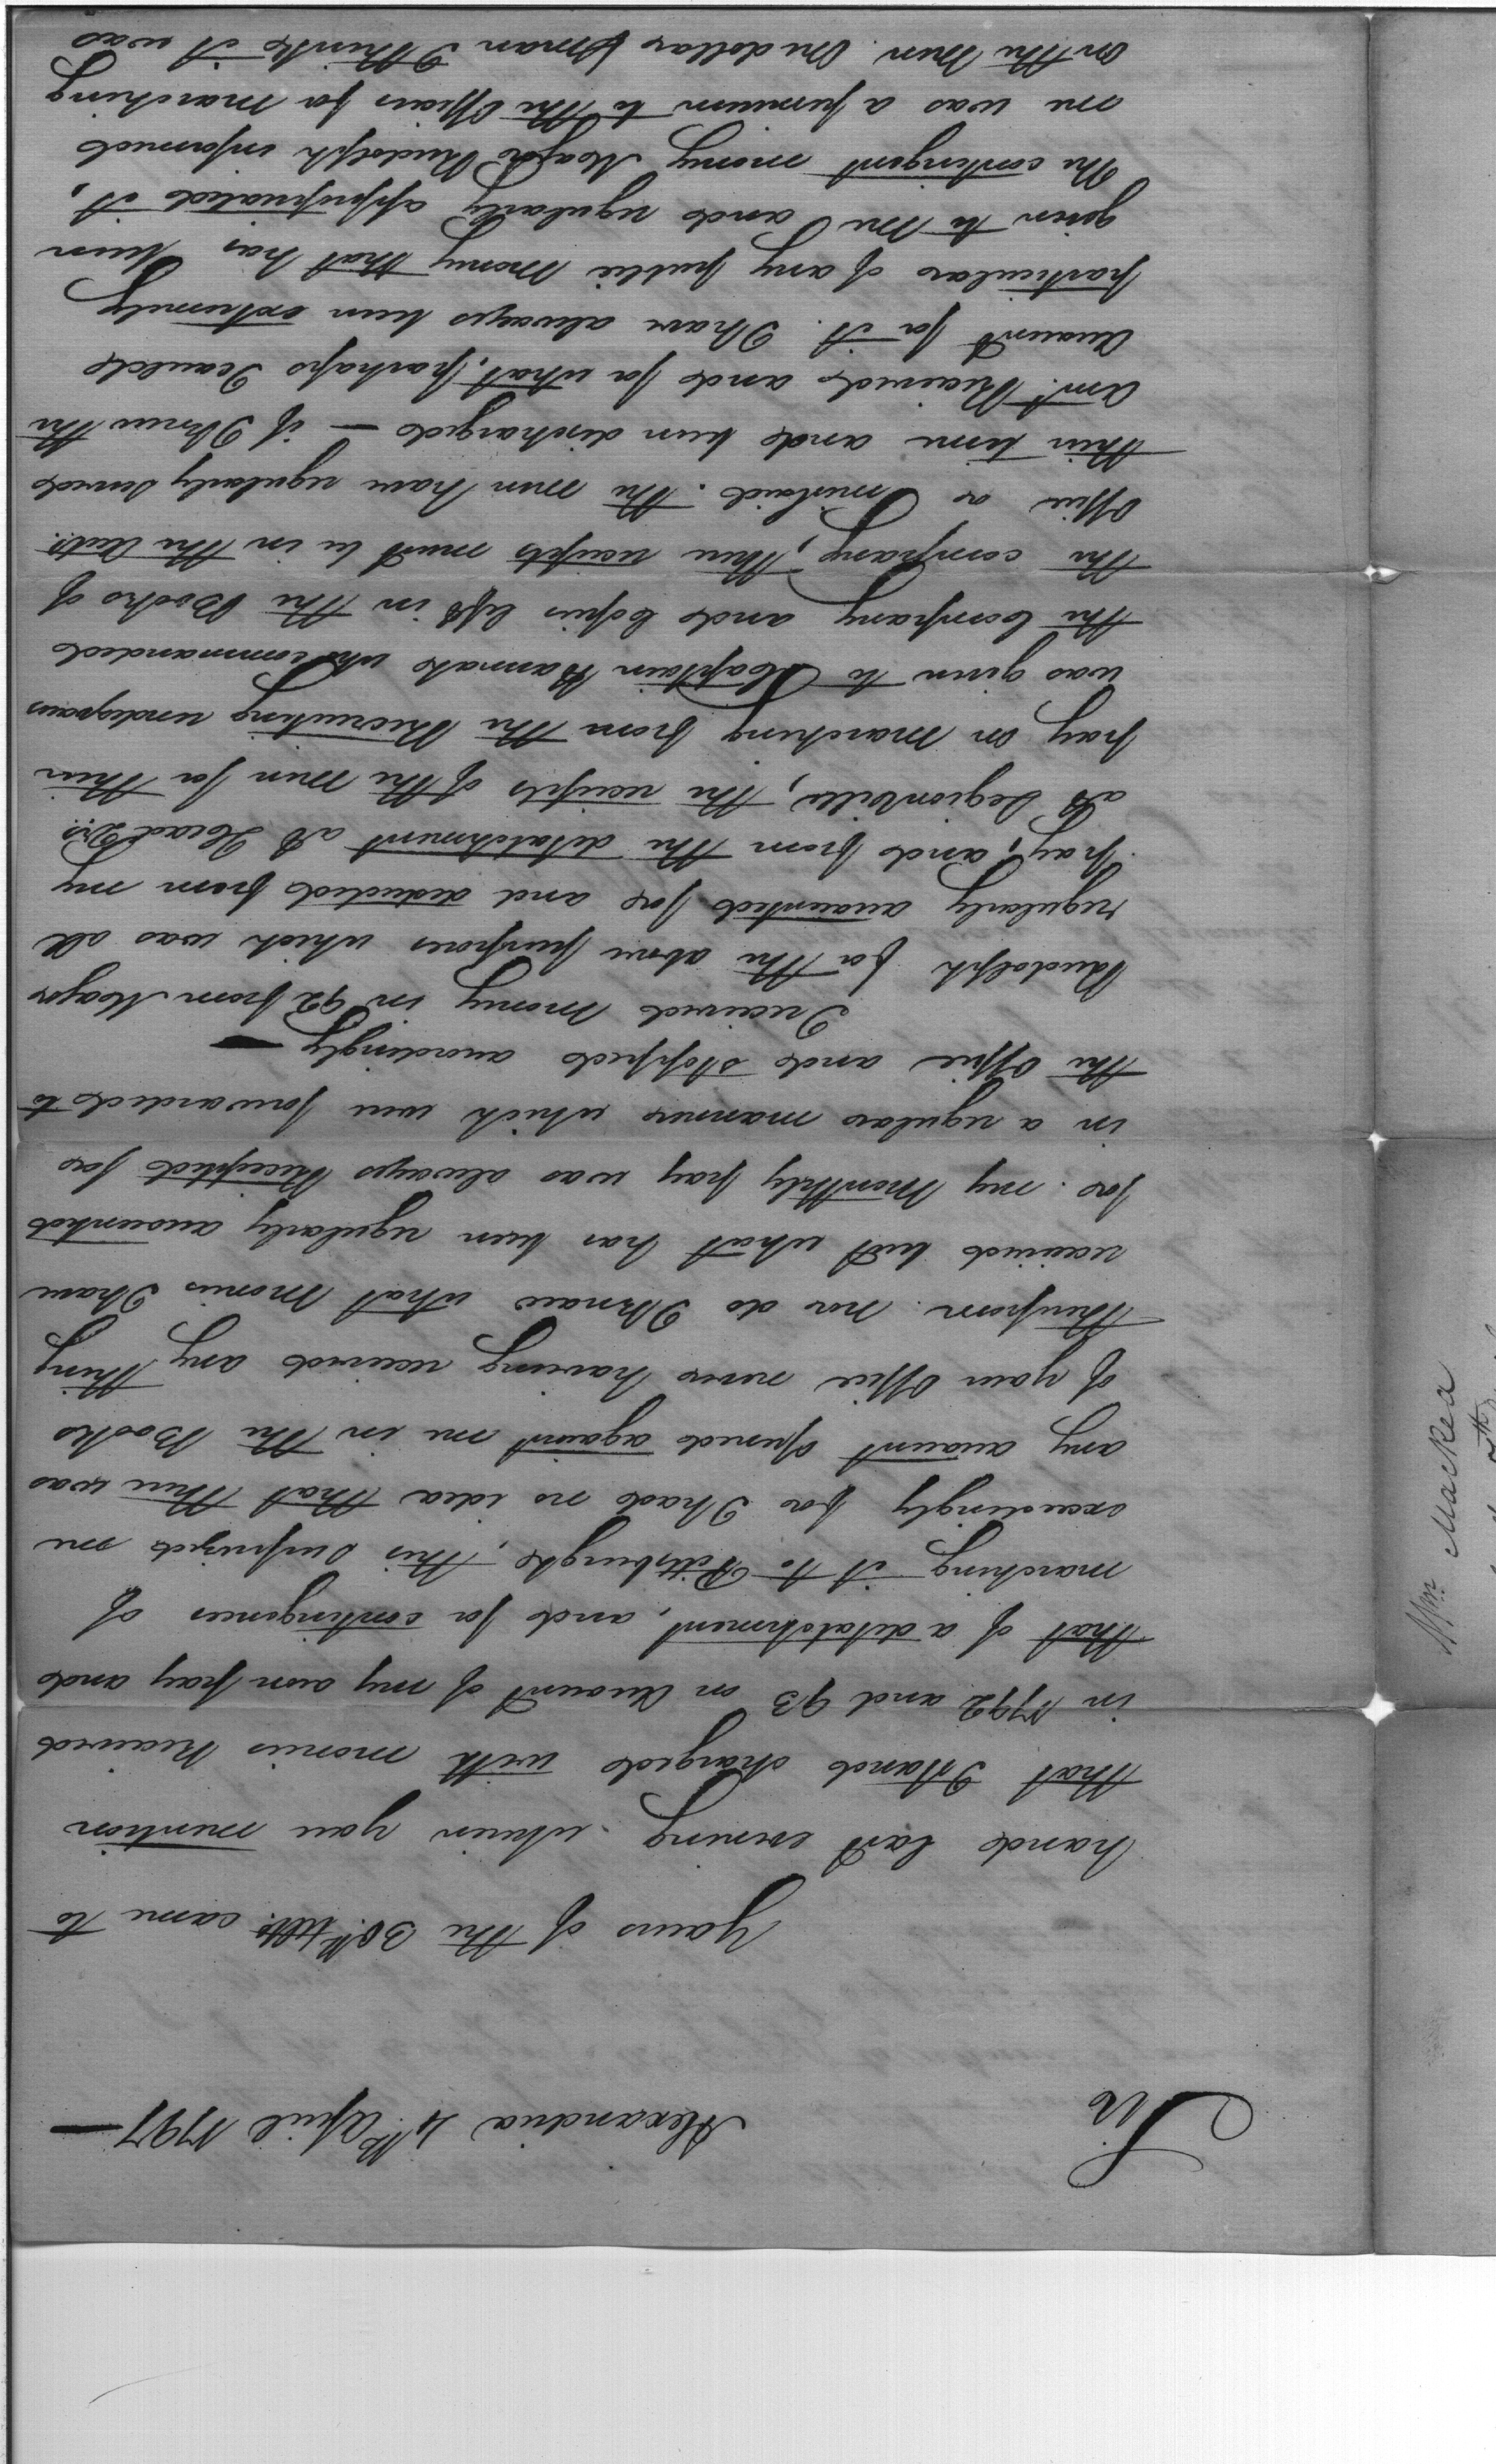 Alexandria 4th April 1797 —
Sir
Yours of the 30th Ulto. came to
hand last evening. wherein you mention
that I stand charged with monies Received
in 1792 and 93 on Account of my own pay and
that of a detatchment, and for contingencies of
marching it to Pittsburgh, this surprized me
exceedingly for I had no idea that there was
any account opened against me in the Books
of your Office never having received any thing
therefrom. nor do I know what Monies I have
received but what has been regularly accounted
for. my Monthly pay was always Receipted for
in a regular manner which were forwarded to
the Office and stopped accordingly —
I received Money in 92 from Major
Rudolph for the above purposes which was all
regularly accounted for and deducted from my
pay, and from the detatchment at Head Qrs.
at Legionville, the receipts of the men for their
pay on marching from the Recruiting rendezvous
was given to Captain Bannate who commanded
the Company and Copies left in the Books of
the company, these receipts must be in the Audrs.
Office or mislaid. the men have regularly served
their time and been discharged — if I knew the
amt. Received and for what, perhaps I could
Account for it. I have always been extremely
particular of any public Money that has been
given to me and regularly appropriated it,
the contingent money Major Rudolph informed
me was a premium to the Officers for marching
on the Men. One dollar pr man I think it was
Wm. MacRea